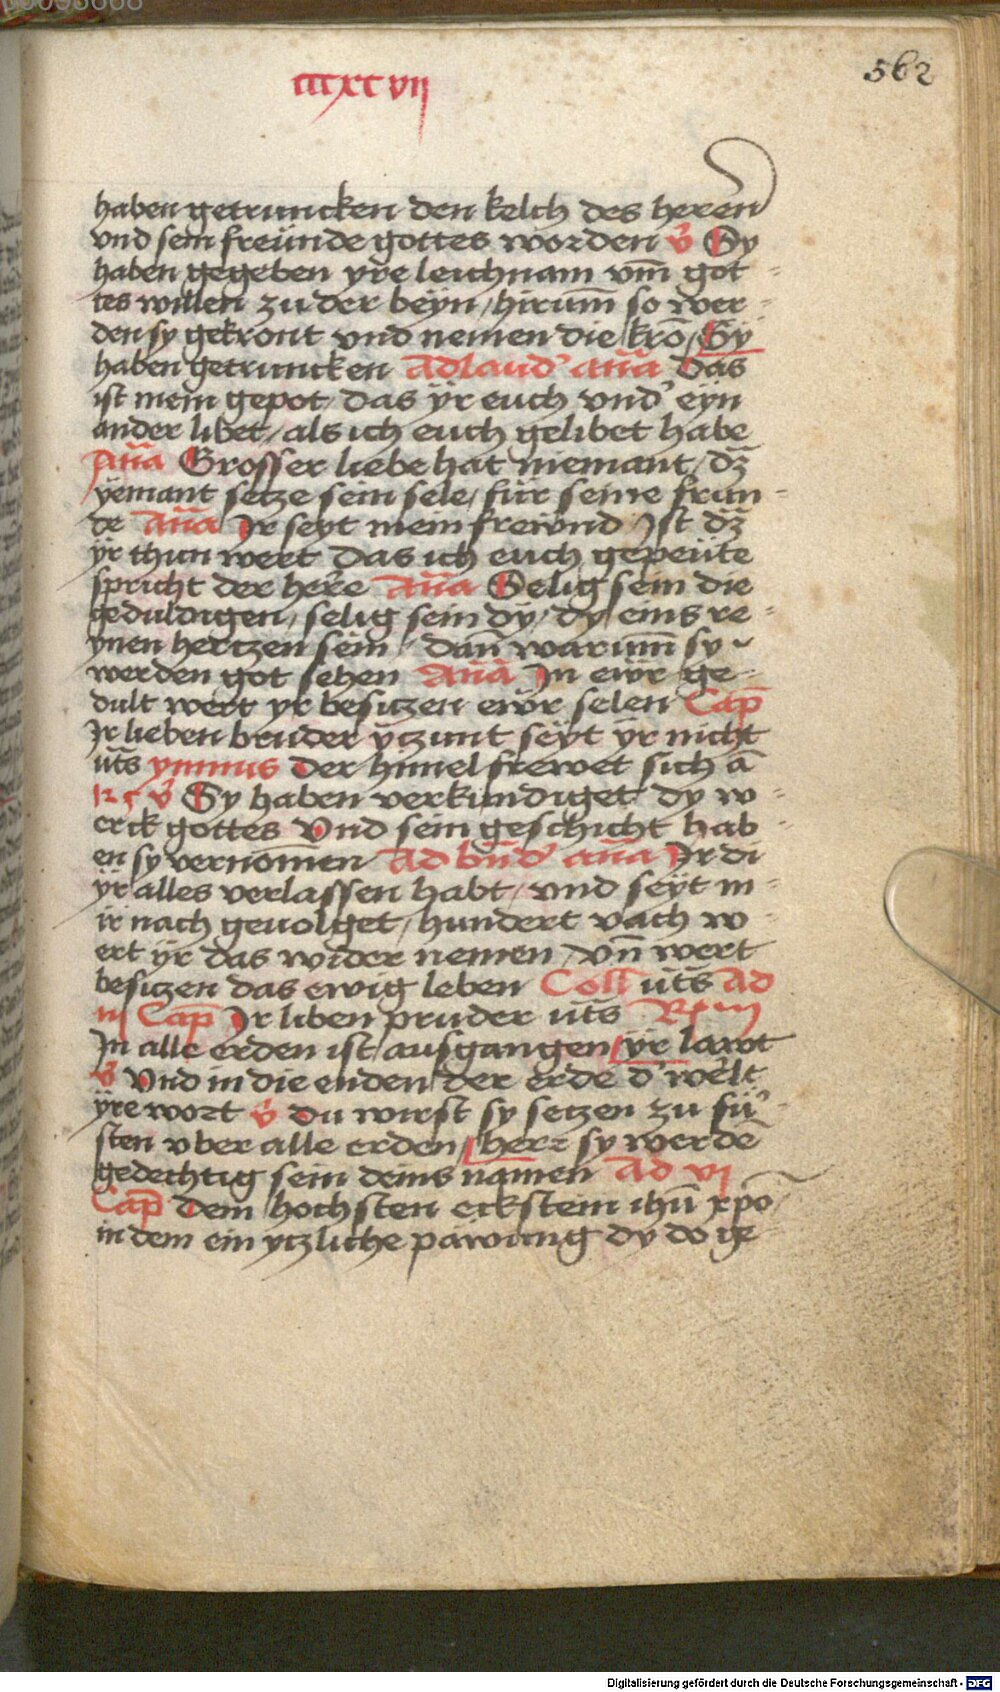 562
cccxcvij
haben getruncken den kelch des heren
vnd sein freünde gottes worden v̉ Sy
haben gegeben yre leichnam vm̄ got-
tes willen zu der beyn / hirum̄ so wer-
den sy gekront vnd nemen die krō / Sy
haben getruncken Ad laud' an̄a Das
ist mein gepot / das ÿr euch vnd' eyn
ander libet / als ich euch gelibet habe
An̄a Grosser liebe hat niemant / dz̄
yemant setze sein sele / für seine frün-
de An̄a Ir seyt mein freẅnd Ist dz̄
ÿr thun wert Das ich euch gepeüte
spricht der here An̄a Selig sein die
geduldigen / selig sein dÿ / dy eins re-
ynen hertzen sein / dan̄ warum̄ sy
werden got sehen An̄a In eẅr ge-
dult wert yr besitzen eẅr selen Cap̄
Ir lieben bruder ÿtzunt seÿt ÿr nicht
ut̄s ymnus Der himel frewet sich ā
v̉ Sy haben verkundiget dy w-
erck gottes Vnd sein geschicht hab-
en sy vernōmen Ad bn̄d' an̄a Ir di
ÿr alles verlassen habt / vnd seÿt m-
ir nach geuolget / hundert vach w-
ert ÿr das wider nemen / vn̄ wert
besitzen das ewig leben Coll̄ ut̄s Ad
iij Cap̄ Ir liben pruder ut̄s
In alle erden ist ausgangen / ÿr lawt
v̉ Vnd in die enden der erde d' welt
ÿre wort v̉ Du wirst sy setzen zu fü-
sten vber alle erden / herr sy werdē
gedechtig sein deins namen Ad vi
Cap̄ Dem hochsten eckstein ihū xpō
in dem ein ytzliche pawung dy do ge
Digitalisierung gefördert durch die Deutsche Forschungsgemeinschaft - DFG